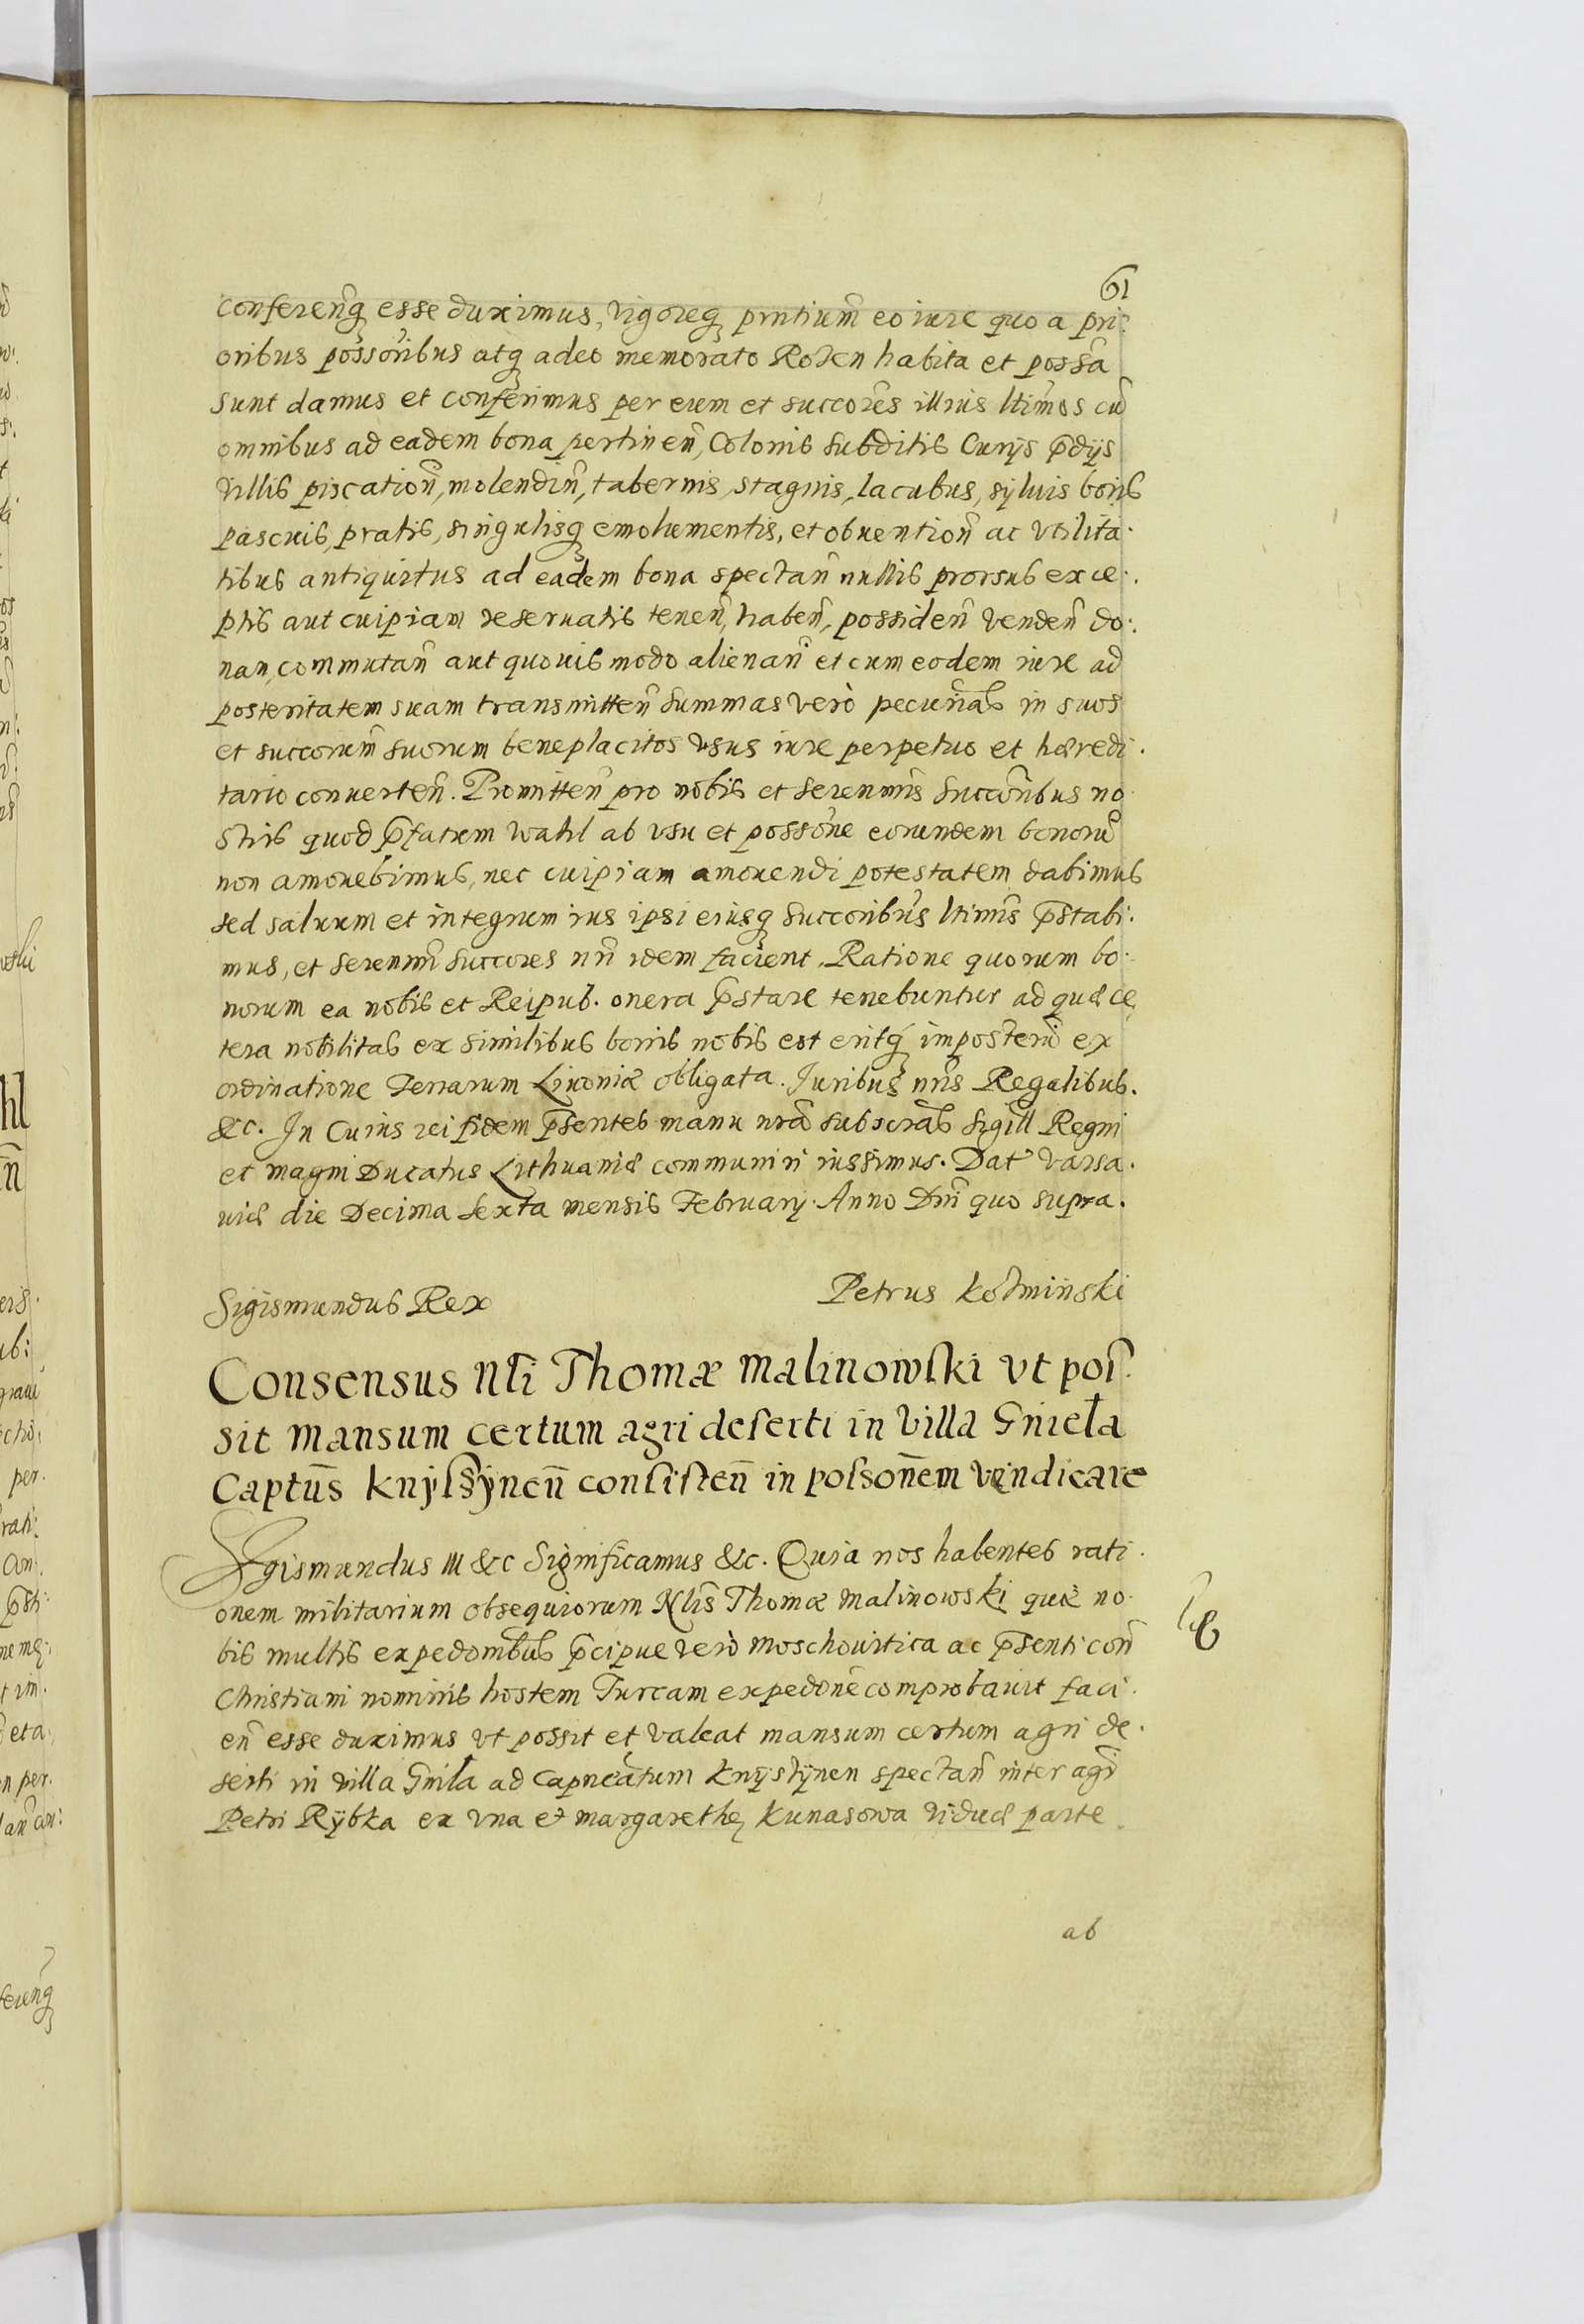 61
conferenq̃ esse duximus, vigoreq pñtium̃ eo iure quo a pri:
oribus possoribus atq adeo memorato Rosen habita et possã
sunt damus et conferimus per eum et succores illius ltimos cũ
omnibus ad eadem bona pertineñ, Colonis subditis Curijs p̃dijs
villis piscatioñ, molendiñ, tabernis, stagnis, lacubus, syluis boris
pascuis, pratis, singulisq emolumentis, et obuentioñ ac vtilita.
tibus antiquitus ad eadem bona spectañ nullis prorsus exce:.
ptis aut cuipiam reseruatis teneñ, habeñ, possideñ vendeñ do:.
nan, commutañ aut quouis modo alienañ et cum eodem iure ad
posteritatem suam transmitteñ summas verò pecuniãs in suos
et succorum̃ suorum beneplacitos vsus iure perpetuo et hæredi.
tario conuerteñ. Promitteñ pro nobis et serenmĩs succoribus no
stris quod p̃fatum Wahl ab vsu et possone eorundem bonorũ
non amouebimus, nec cuipiam amouendi potestatem dabimus
sed saluum et integrum ius ipsi eiusq succoribus ltimis p̃stabi.
mus, et serenmĩ succores nrĩ idem facient. Ratione quorum bo.
norum ea nobis et Reipub. onera p̃stare tenebuntur ad quæ ce
tera nobilitas ex similibus bonis nobis est eritq́ imposterũ ex
ordinatione Terrarum Liuoniæ obligata. Iuribus nrĩs Regalibus.
&c. In Cuius rei fidem p̃sentes manu nrã subscrãs sigill Regni
et magni Ducatus Lithuaniæ communiri iussimus. Dat Varsa.
uiæ die Decima sexta mensis February. Anno Dnĩ quo supra.
Sigismundus Rex Petrus Kozminski
Consensus Nli Thomæ Malinowski vt pos:
sit mansum certum agri deserti in Villa Gnieła
Captus̃ Knysʒyneñ consisteñ in possoñem vendicare
Sigismundus III &c Significamus &c. Quia nos habentes rati.
onem militarium obsequiorum Nlis̃ Thomæ Malinowski quæ no.
bis multis expedonibus p̃cipue verò Moschouitica ac p̃senti coñ
Christiani nominis hostem Turcam expedonẽ comprobauit faci.
eñ esse duximus vt possit et valeat mansum certum agri de.
serti in villa Gniła ad Capneãtum Knyszynen spectañ inter agrĩ
Petri Rybka ex vna et margarethę Kunasowa viduæ parte
ab